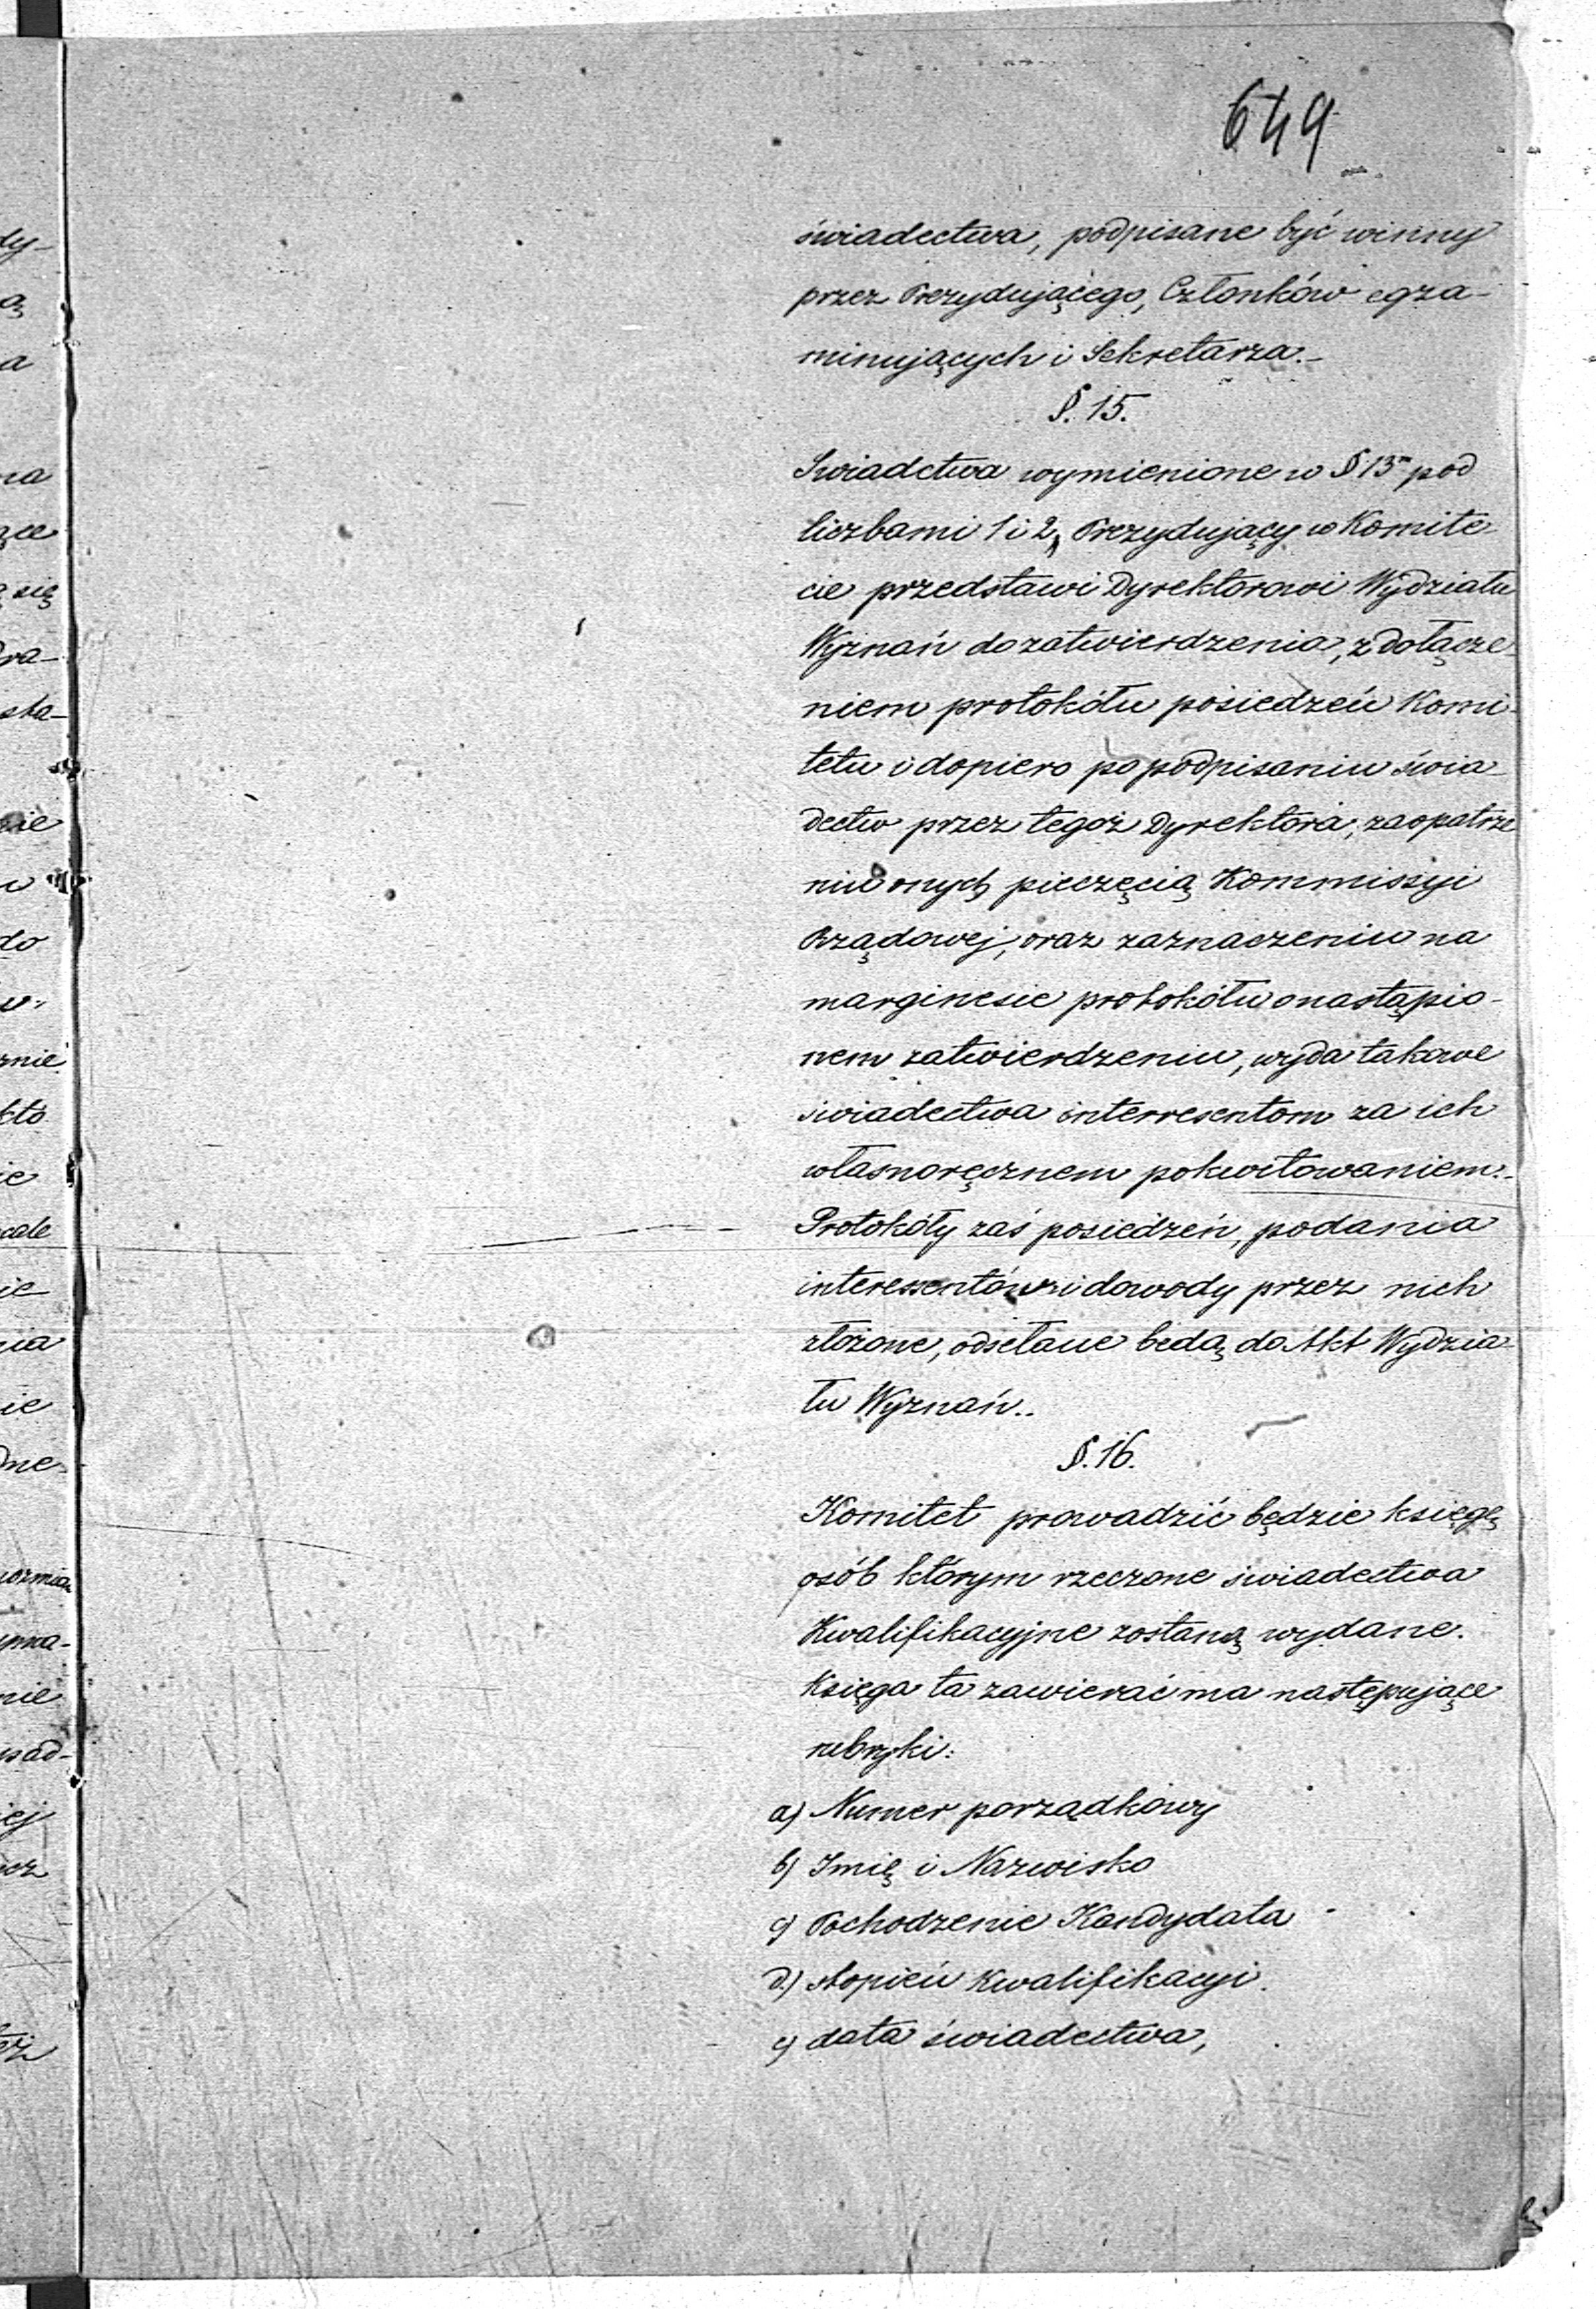 649
świadectwa, podpisane być winny
przez Prezydującego, Członków egza-
minujących i Sekretarza.-
§. 15.
Swiadctwa wymienione w § 13m pod
liczbami 1 i 2, Prezydujący w Komite-
cie przedstawi Dyrektorowi Wydziału
Wyznań do zatwierdzenia, z dołącze-
niem protokółu posiedzeń Komi-
tetu i dopiero po podpisaniu świa-
dectw przez tegoż Dyrektora, zaopatrze
niu onych pieczęcią Kommissyi
Rządowej, oraz zaznaczeniu na
marginesie protokółu o nastąpio-
nem zatwierdzeniu, wyda takowe
świadectwa interresentom za ich
własnoręcznem pokwitowaniem.-
Protokóły zaś posiedzeń, podania
interessentów i dowody przez nich
złożone, odsełane bedą do Akt Wydzia-
łu Wyznań..
§. 16.
Komitet prowadzić będzie księgę
osób którym rzeczone świadectwa
Kwalifikacyjne zostaną wydane.
Księga ta zawierać ma następujące
rubryki:
a) Numer porządkowy
b) Imię i Nazwisko
c) Pochodzenie Kandydata
d.) stopień Kwalifikacyi.
e) data świadectwa,